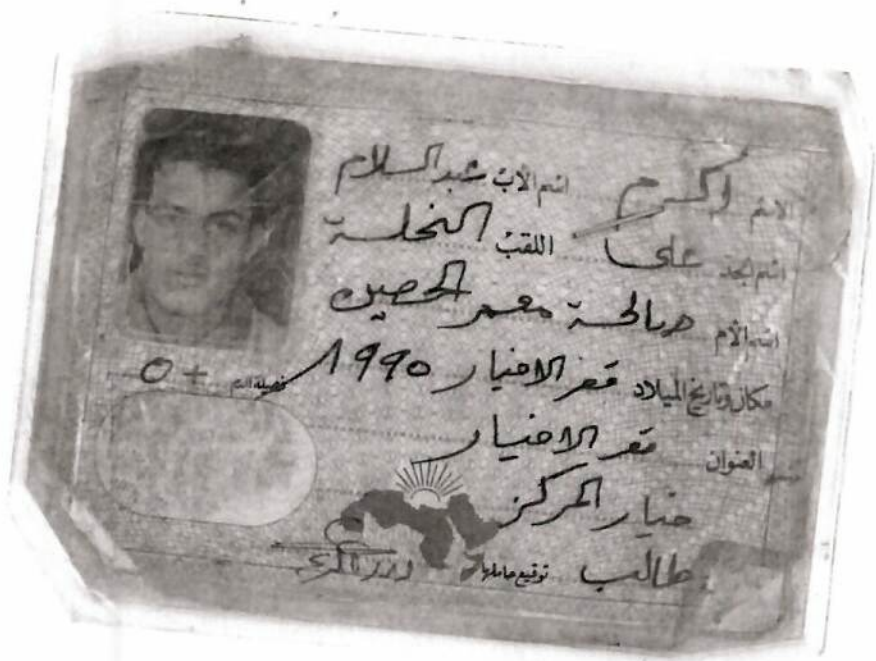 الاسم أكرم اسم الأب عبدالسلام
اسم الجد علي اللقب النخلة
اسم الأم صالحة معمر الحصين
مكان وتاريخ الميلاد قصر الاخيار 1990 فصيلة الدم O+
العنوان قصر الاخيار
خيار المركز
طالب توقيع حاملها